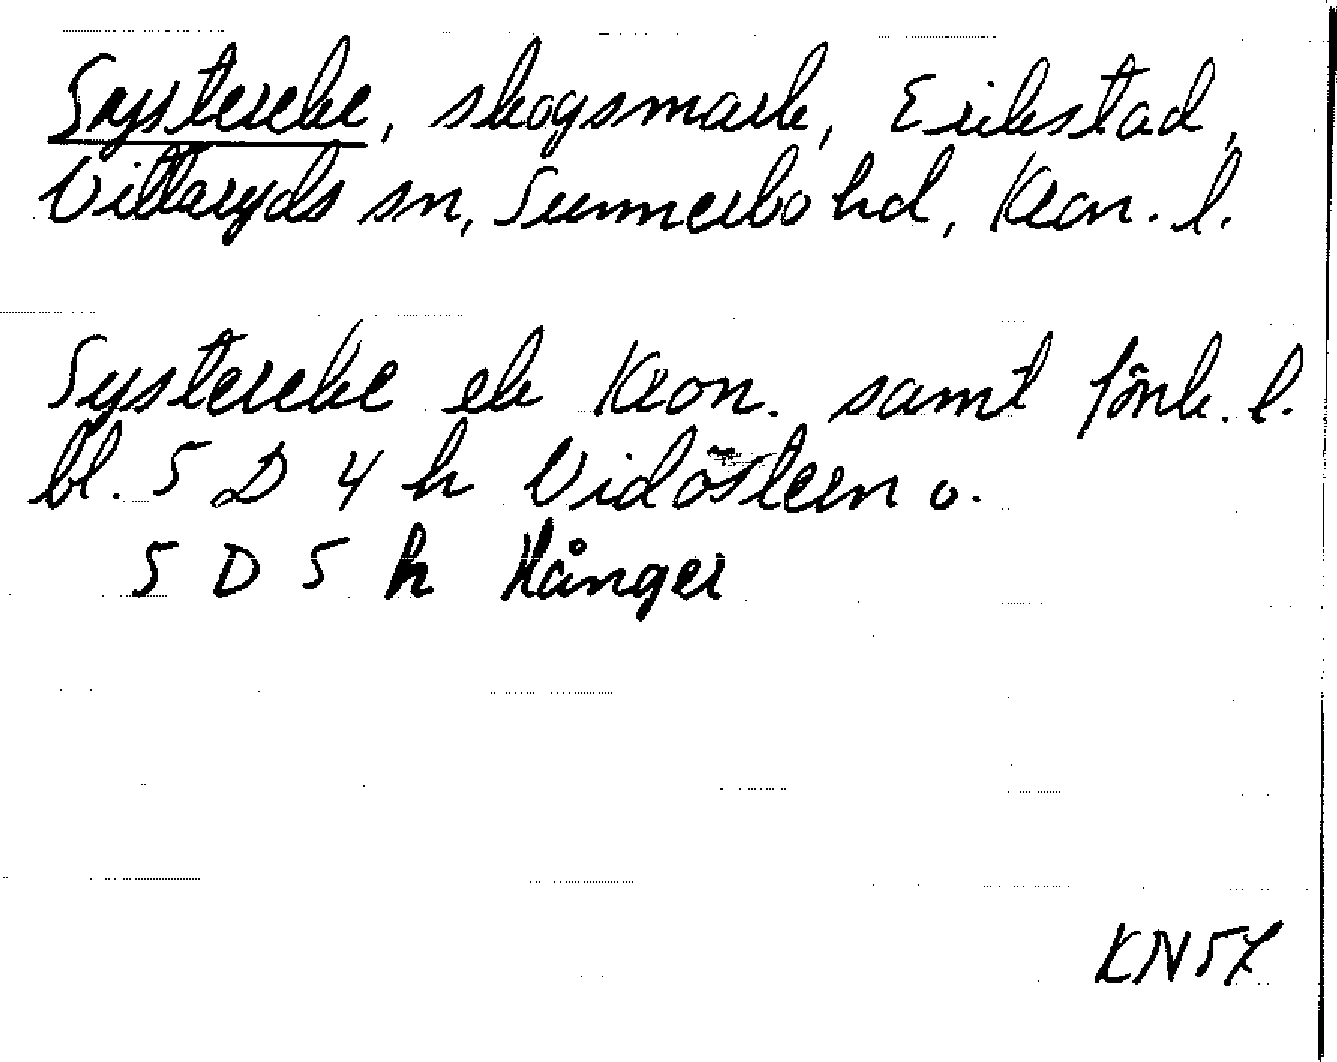 Systereke, skogsmark, Erikstad,
Vittaryds sn, Sunnerbo hd, Kron. l.
Systereke ek Kron. samt Jönk. l.
bl. 5 D 4 h Vidöstern o.
5 D 5 h Hånger
KN57